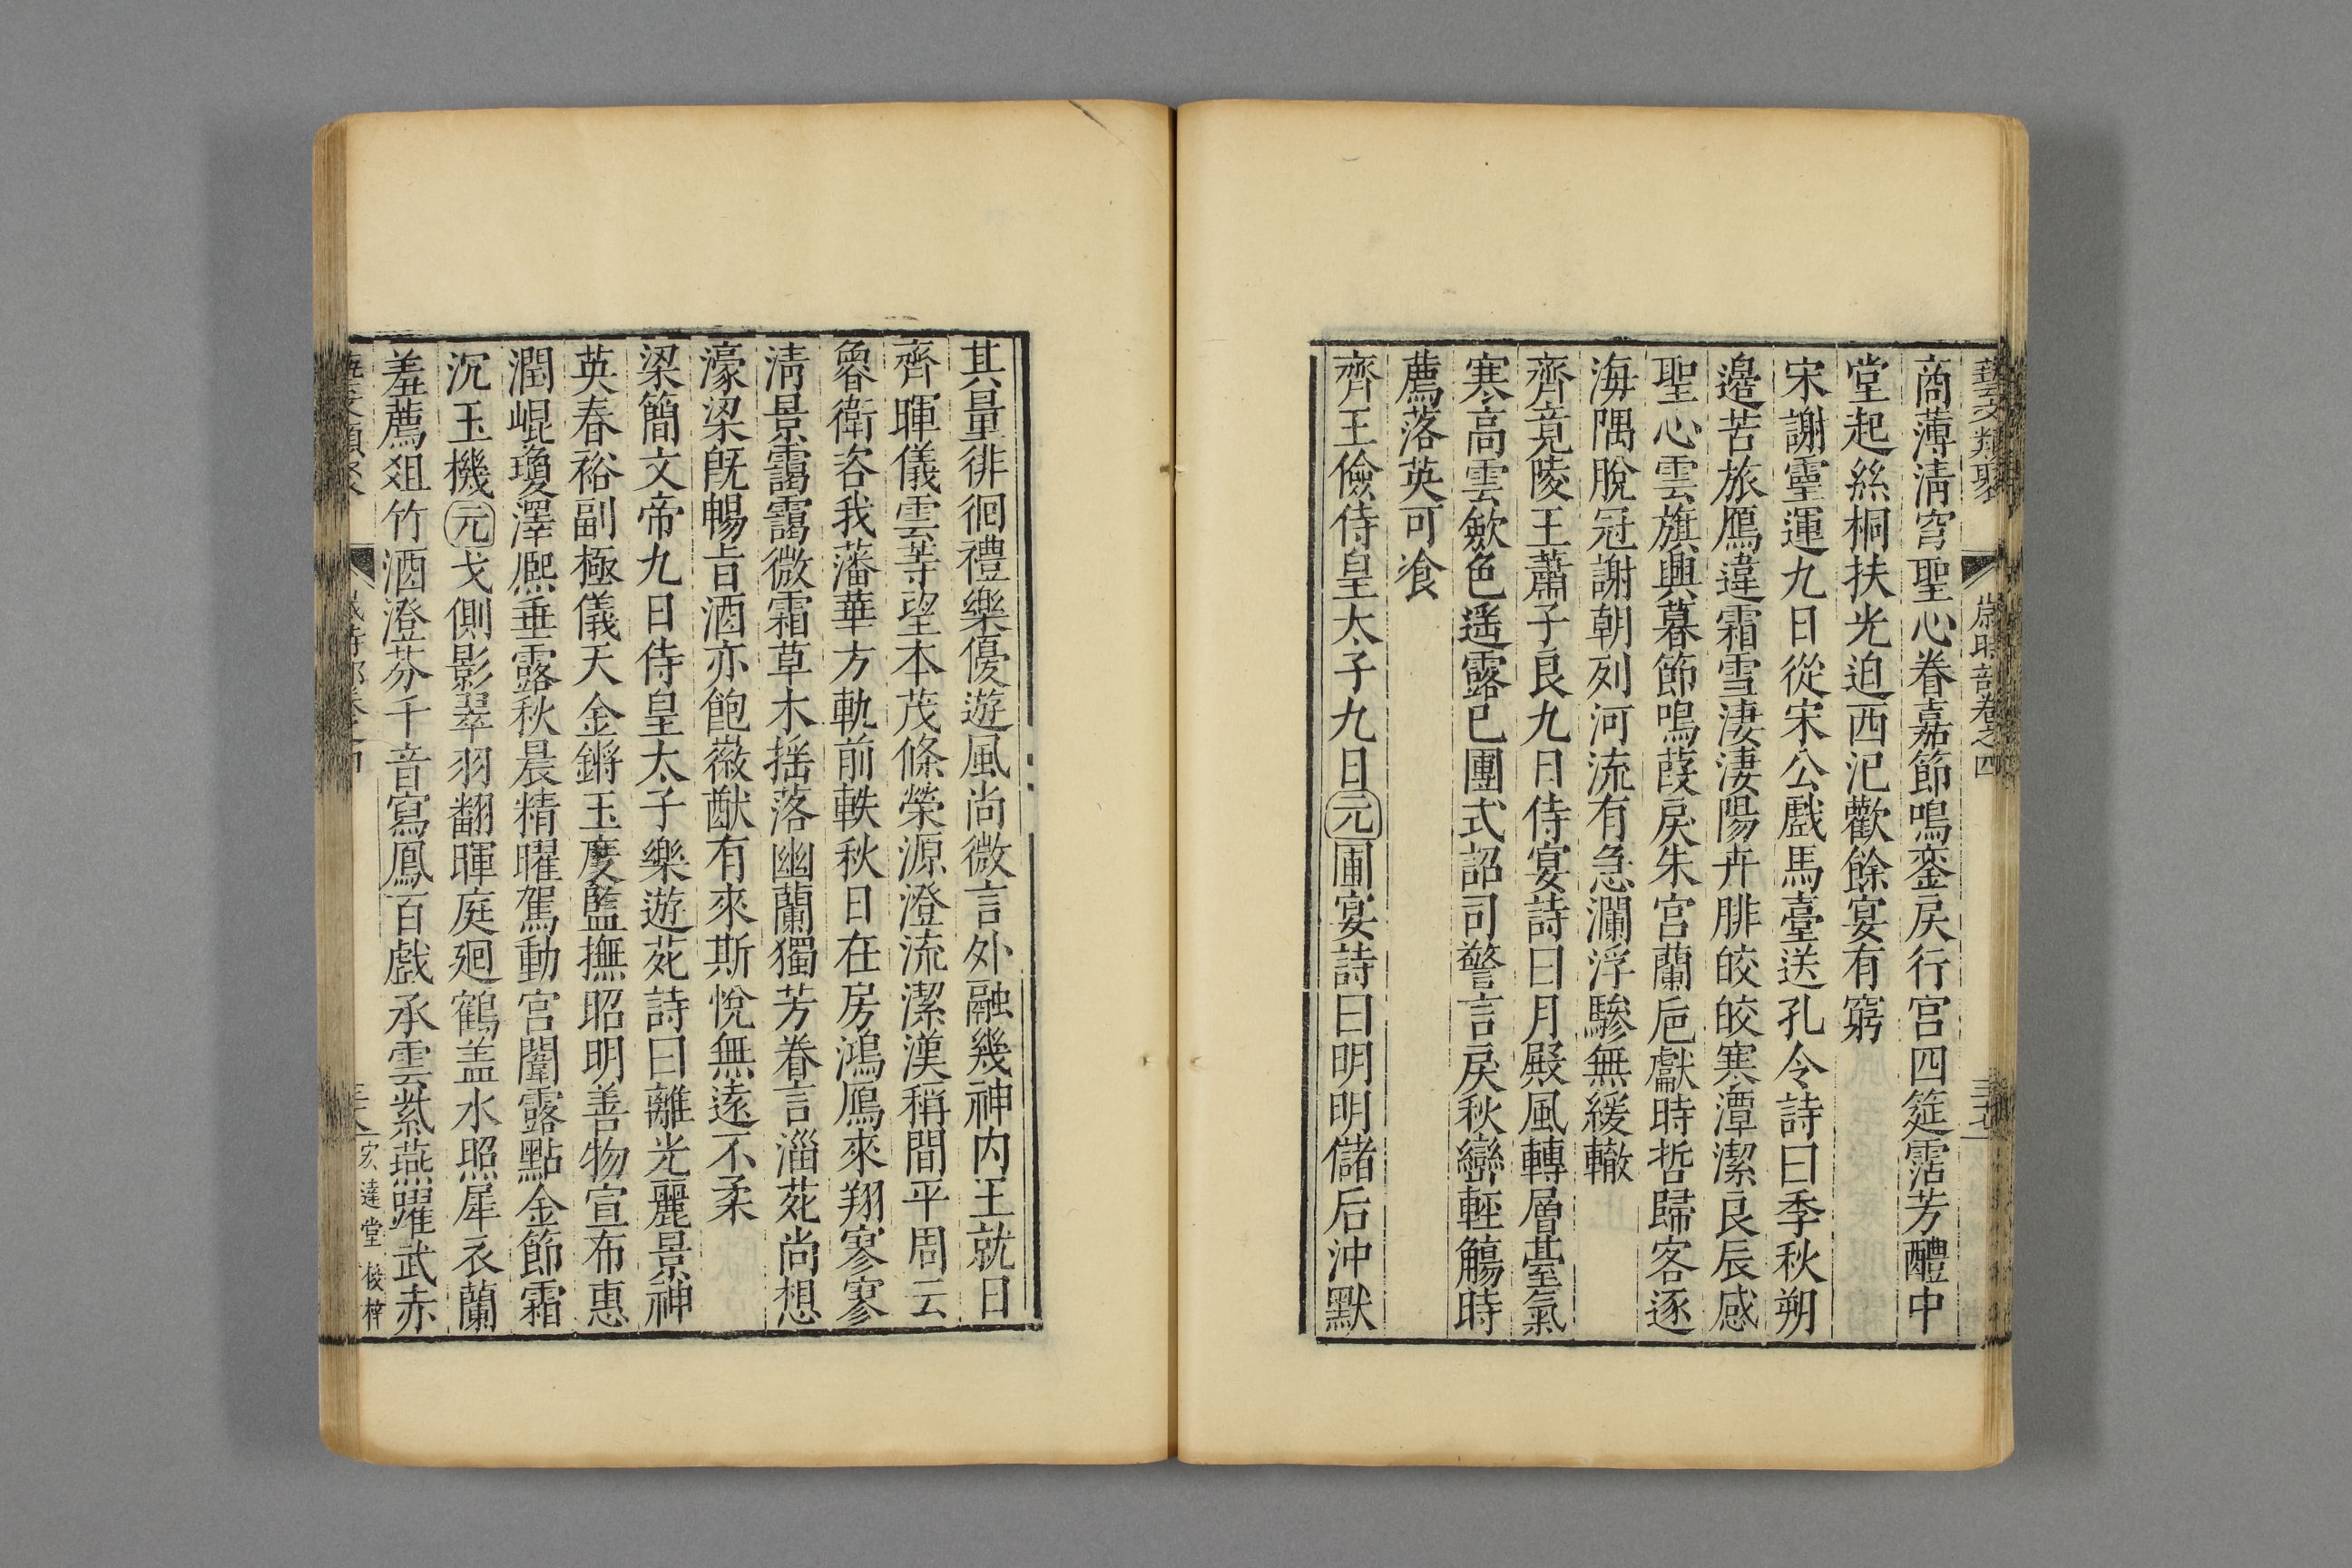 藝文類聚 歲時部卷之四
商薄清穹聖心眷嘉節鳴鑾戾行宮四筵霑芳醴中
堂起絲桐扶光迫西汜歡餘宴有窮
宋謝靈運九日從宋公戲馬臺送孔令詩曰季秋朔
邊苦旅鴈違霜雪淒淒陽卉腓皎皎寒潭潔良辰感
聖心雲旗興暮節鳴葭戾朱宮蘭巵獻時哲歸客逐
海隅脫冠謝朝列河流有急瀾浮驂無緩轍
齊竟陵王蕭子良九日侍宴詩曰月殿風轉層臺氣
寒高雲歛色遙露已團式詔司警言戾秋巒輕觴時
薦落英可飡
齊王儉侍皇太子九日元圃宴詩曰明明儲后沖默
其量徘徊禮樂優遊風尚微言外融幾神内王就日
齊暉儀雲等望本茂條榮源澄流潔漢稱間平周云
魯衛咨我藩華方軌前軼秋日在房鴻鴈來翔寥寥
清景靄靄微霜草木揺落幽蘭獨芳眷言淄苑尚想
濠梁旣暢旨酒亦飽徽猷有來斯悅無遠不柔
梁簡文帝九日侍皇太子樂遊苑詩曰離光麗景神
英春裕副極儀天金鏘玉度監撫昭明善物宣布惠
潤崐瓊澤熈垂露秋晨精曜駕動宮闈露點金節霜
沉玉機元戈側影翠羽翻暉庭廻鶴盖水照犀衣蘭
羞薦爼竹酒澄芬千音寫鳳百戲承雲紫燕躍武赤
宏達堂校梓